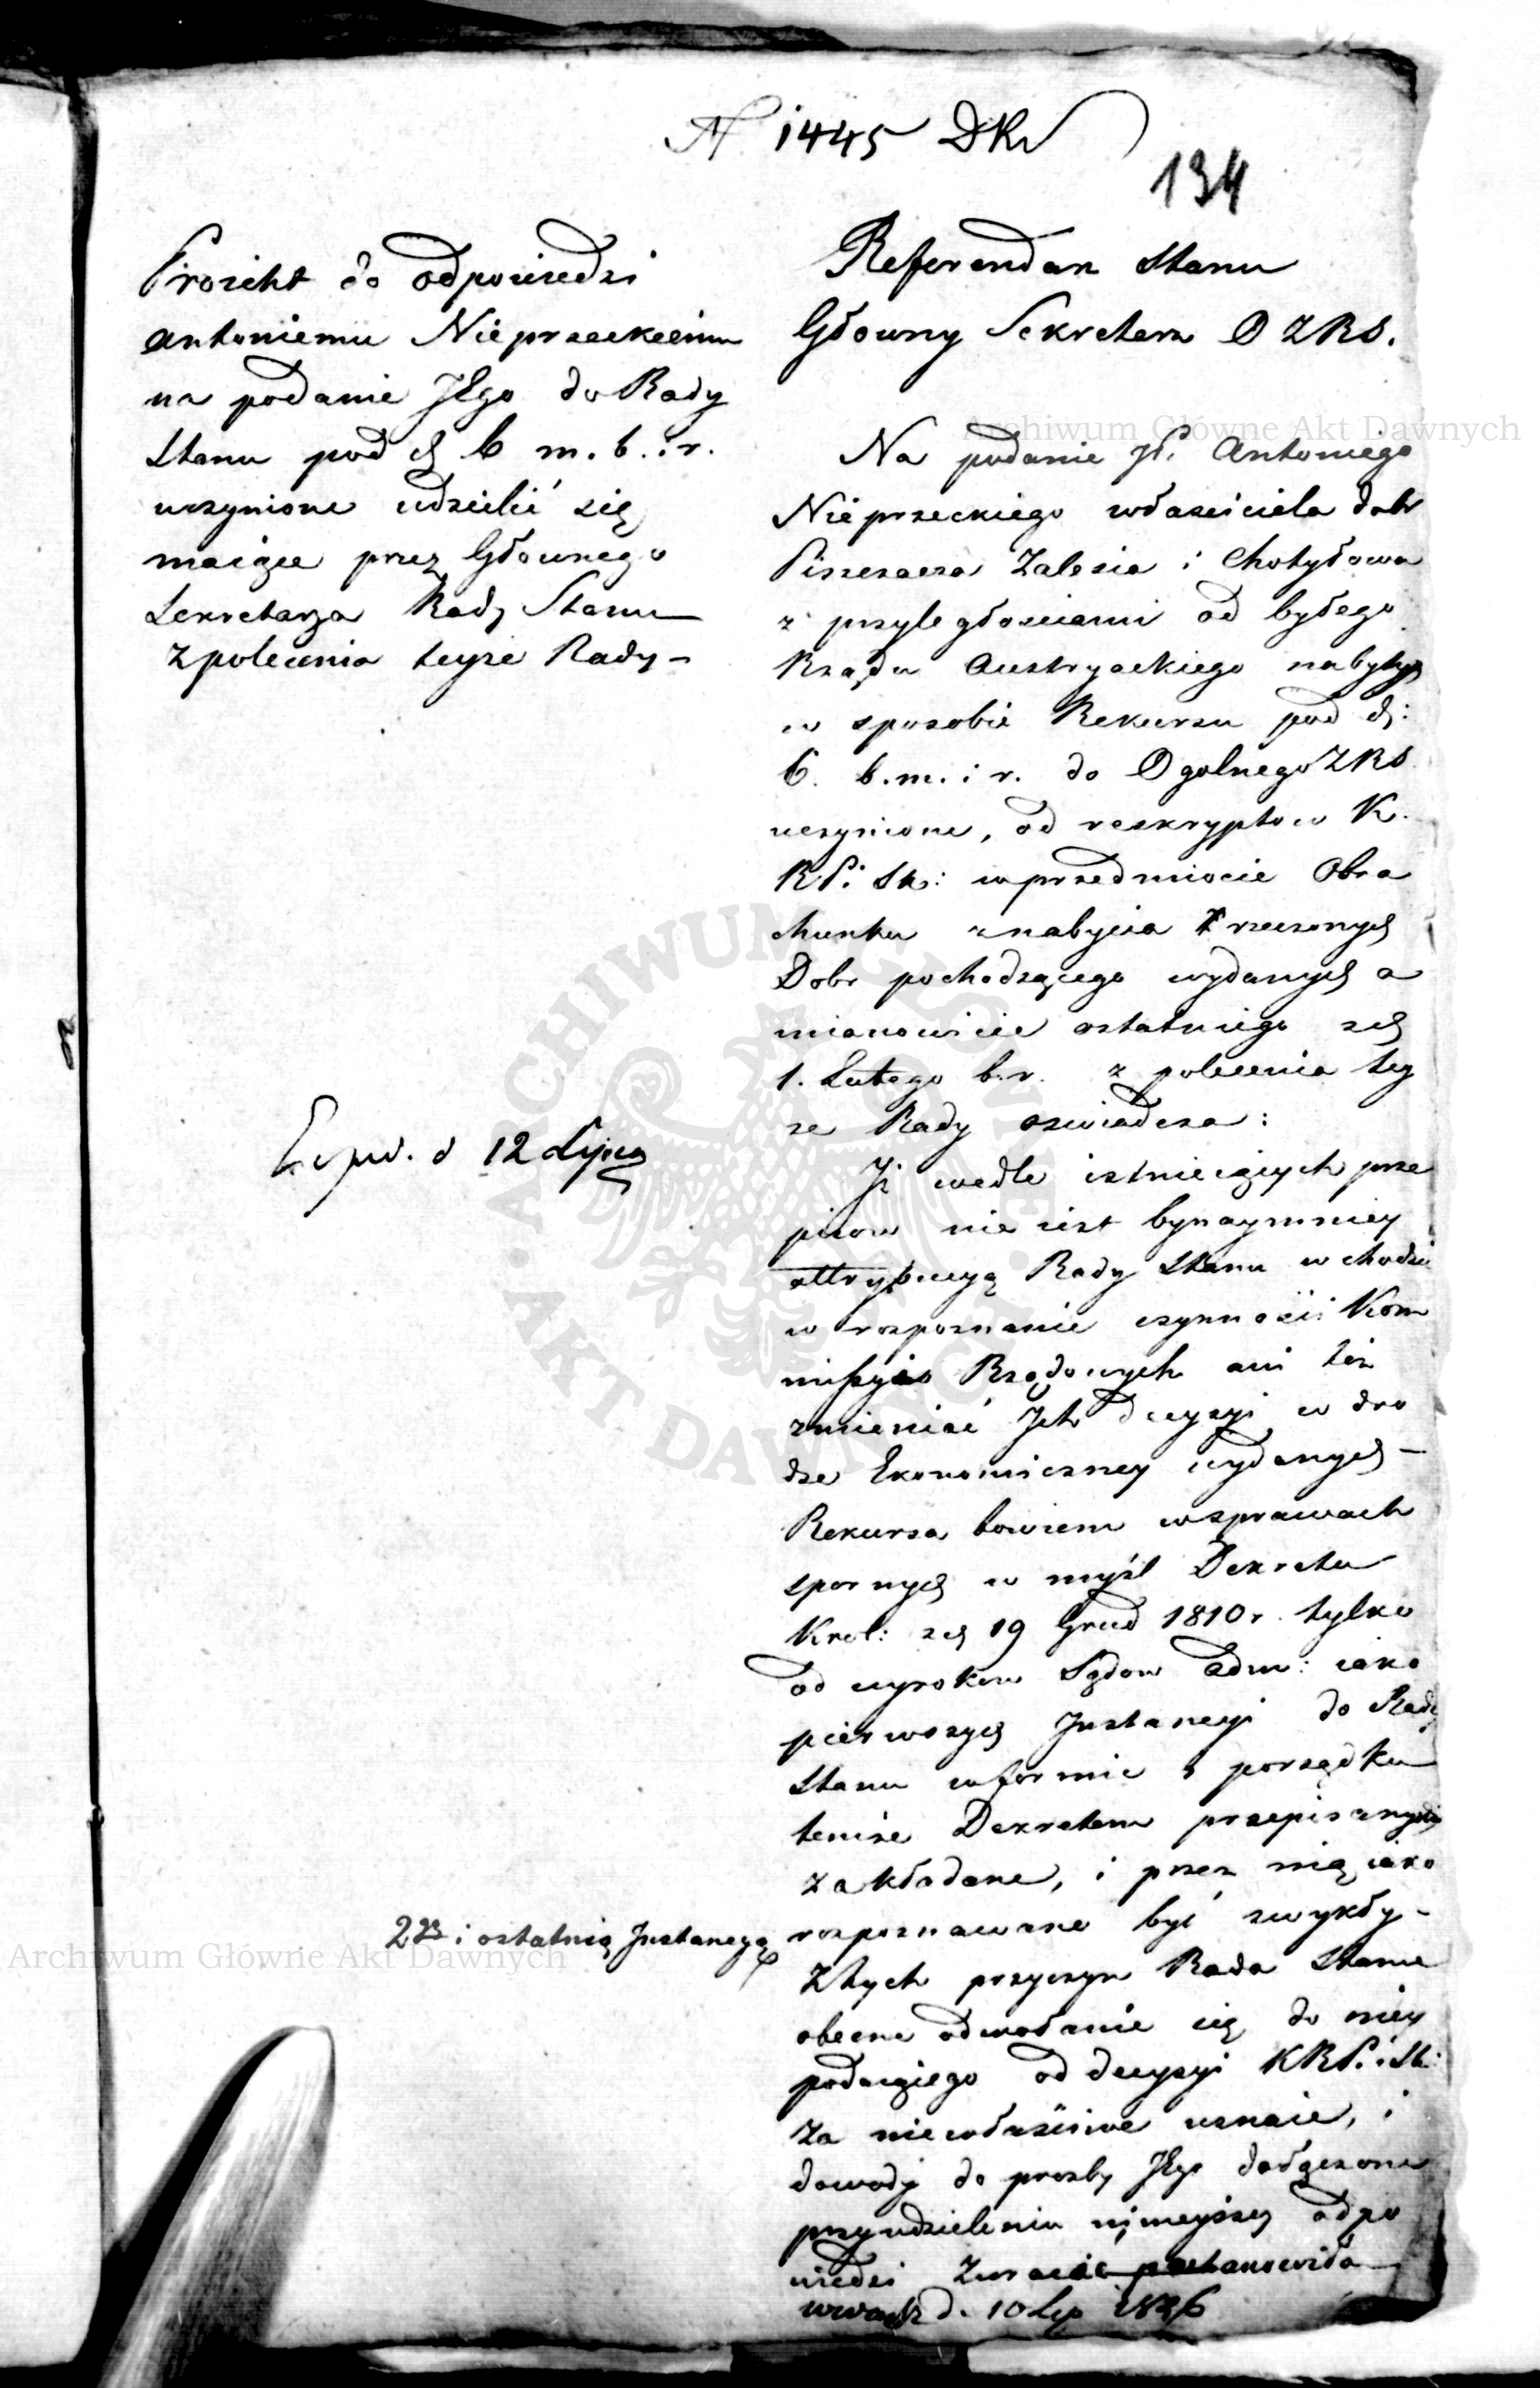 N 1445 DKS
134
Proiekt do odpowiedzi
Antoniemu Nieprzeckiemu
na podanie JEgo do Rady
Stanu pod d 6 m. b. i r.
uczynione udzielić się
maiące przez Głownego
Sekretarza Rady Stanu
z polecenia teyże Rady –
Referendarz Stanu
Głowny Sekretarz O Z R S.
Na podanie JP. Antoniego
Nieprzeckiego właściciela dobr
Piszczacza Zalesia i Chotyłowa
z przyległościami od byłego
Rządu Austryackiego nabytych
w sposobie Rekursu pod d:
6. b. m. i r. do Ogolnego Z R S
uczynione, od reskryptow K.
R P. i Sk: w przedmiocie Obra
chunku z nabycia rzeczonych
Dobr pochodzącego wydanych a
mianowicie ostatniego z d
1. Lutego b. r. z polecenia tey
że Rady oswiadcza:
Iż wedle istnieiących prze
pisow nie iest bynaymniey
attrybucyą Rady Stanu wchodzić
w rozpoznanie czynności Kom
missyio Rządowych ani też
zmieniać Ich decyzyi w dro
dze Ekonomiczney wydanych –
Rekursa bowiem w sprawach
spornych w myśl Dekretu
Krol: z d 19 Grud 1810 r. tylko
od wyrokow Sądow adm: iako
pierwszych Instancyi do Rady
Stanu w formie i porządku
temże Dekretem przepisanych
zakładane, i przez nią iako
2gą i ostatnią Instancyą
rozpoznawane być zwykły –
Z tych przyczyn Rada Stanu
obecne odwołanie się do niey
podaiącego od decyzyi K R P. i Sk:
za niewłaściwe uznaie, i
dowody do prozby JEgo dołączone
przy udzieleniu ninieyszey odpo
wiedzi zwracać postanowiła
w Warsz d. 10 Lip 1816
Expd. d 12 Lipca
Archiwum Główne Akt Dawnych
Archiwum Główne Akt Dawnych
ARCHIWUM GŁÓWNE · AKT DAWNYCH ·